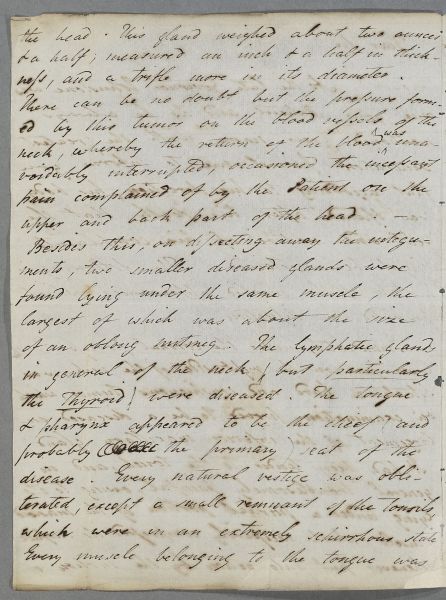 the head. This gland weighed about two ounces
& a half; measured an inch & a half in thick-
ness, and a trifle more in its diameter.
There can be no doubt but the pressure form
ed by this tumor on the blood vessels of the
neck, whereby the return of the blood was una-
voidably interrupted, occasioned the incessant
pain complained of by the Patient on the
upper and back part of the head. —
Besides this, on dissecting away the integu-
ments, two smaller diseased glands were
found lying under the same muscle, the
largest of which was about the size
of an oblong nutmeg. The lymphatic glands
in general of the neck, (but particularly
the Thyroid) were diseased. The tongue
& pharynx appeared to be the chief (and
probably the primary) seat of the
disease. Every natural vestige was obli-
terated, except a small remnant of the tonsils,
which were in an extremely schirrhous state
Every muscle belonging to the tongue was